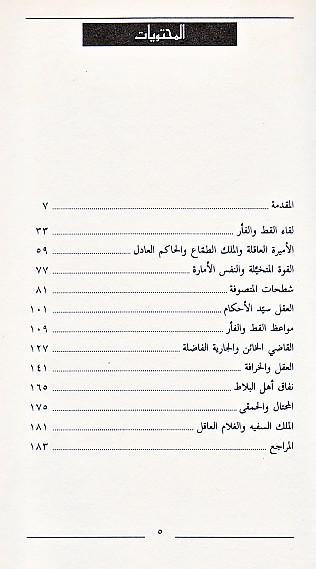 المحتويات
المقدمة ............ ٧
لقاء القط والفأر ............ ٣٣
الأميرة العاقلة والملك الطمّاع والحاكم العادل ............ ٥٩
القوة المتخيّلة والنفس الأمارة ............ ٧٧
شطحات المتصوفة ............ ٨١
العقل سيّد الأحكام ............ ١٠١
مواعظ القط والفأر ............ ١٠٩
القاضي الخائن والجارية الفاضلة ............ ١٢٧
العقل والخرافة ............ ١٤١
نفاق أهل البلاط ............ ١٦٥
المحتال والحمقى ............ ١٧٥
الملك السفيه والغلام العاقل ............ ١٨١
المراجع ............ ١٨٣
٥